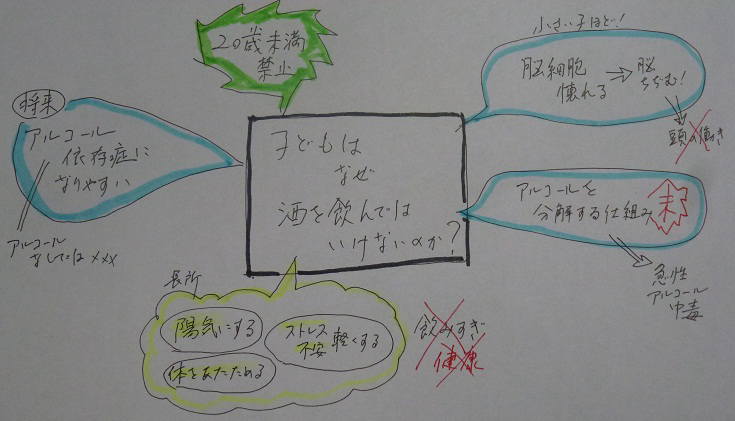 20歳未満
禁止
小さい子ほど!
脳細胞
壊れる ⇒ 脳
ちぢむ!
頭の働き
将来
アルコール
依存症に
なりやすい
アルコール
なしでは×××
子どもは
なぜ
酒を飲んでは
いけないのか?
アルコールを
分解する仕組み 未
急性
アルコール
中毒
長所
陽気にする
ストレス
不安 軽くする
体をあたためる
飲みすぎ
健康